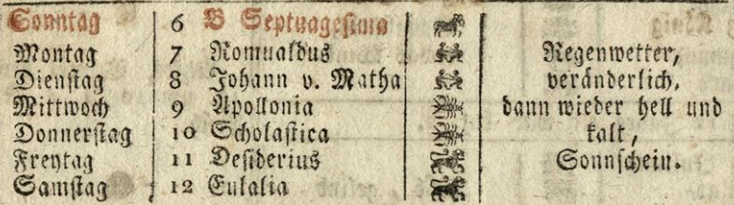 Sonntag 6 B Septuagesima
Montag 7 Romualdus Regenwetter,
Dienstag 8 Johann v. Matha veränderlich,
Mittwoch 9 Apollonia dann wieder hell und
Donnerstag 10 Scholastica kalt,
Freytag 11 Desiderius Sonnschein.
Samstag 12 Eulalia